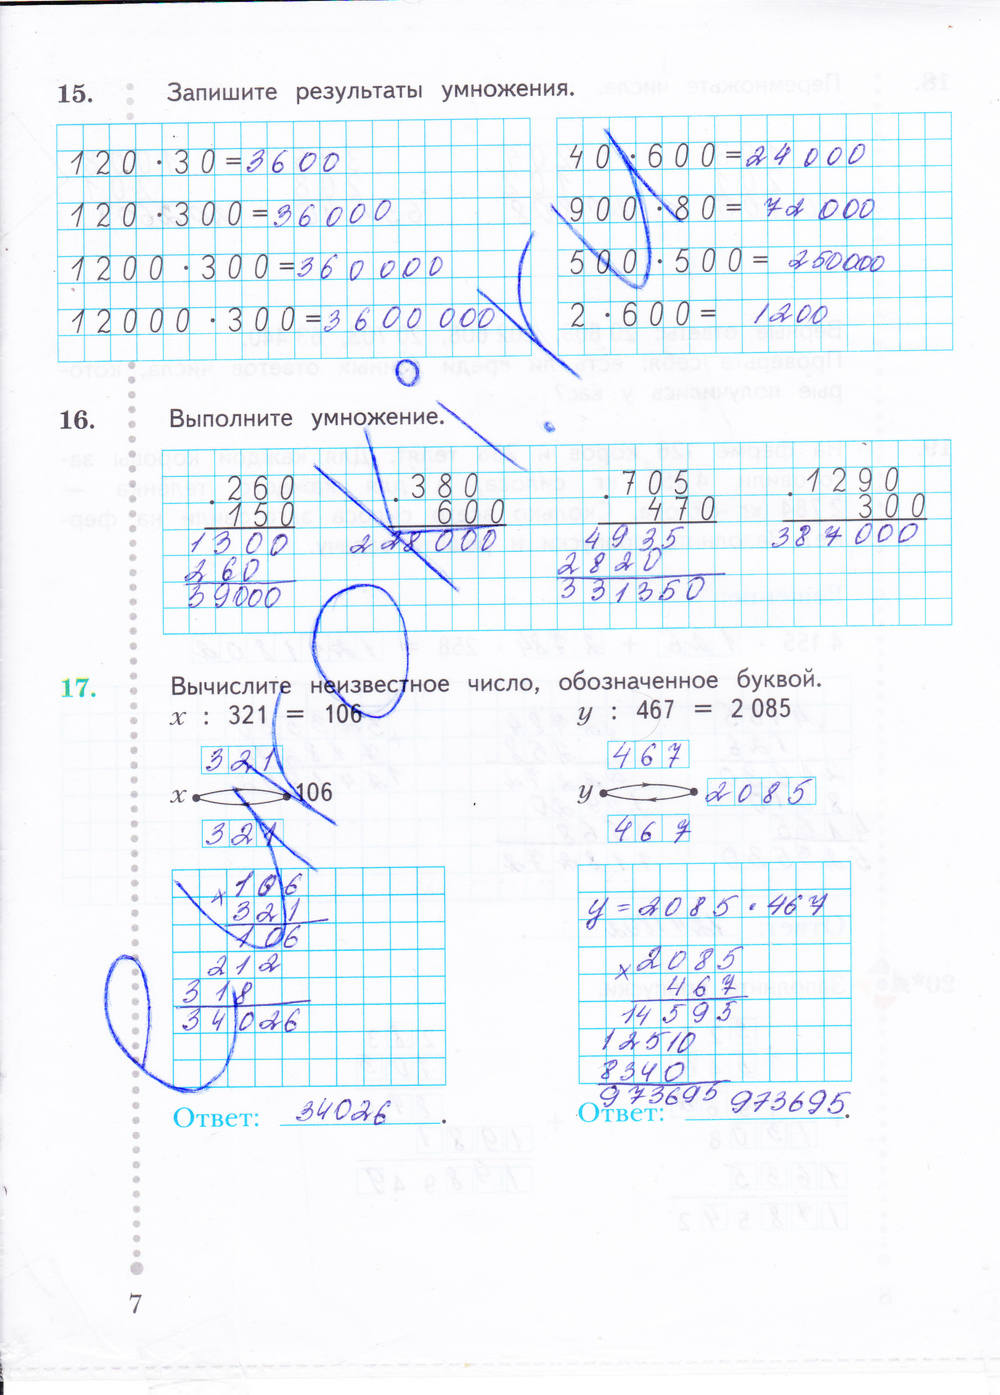 15. Запишите результаты умножения.
120 · 30 = 3600
120 · 300 = 36000
1200 · 300 = 360000
12000 · 300 = 3600 000
40 · 600 = 24 000
900 · 80 = 72 000
500 · 500 = 250000
2 · 600 = 1200
16. Выполните умножение.
. 260
150
1300
260
39000
. 380
600
228000
. 705
470
4935
2820
331350
. 1290
300
387000
17. Вычислите неизвестное число, обозначенное буквой.
x : 321 = 106
321
x 106
321
x 106
321
106
212
318
34026
Ответ: 34026.
y : 467 = 2 085
467
y 2085
467
y = 2085 · 467
x 2085
467
14595
12510
8340
973695
Ответ: 973695.
7